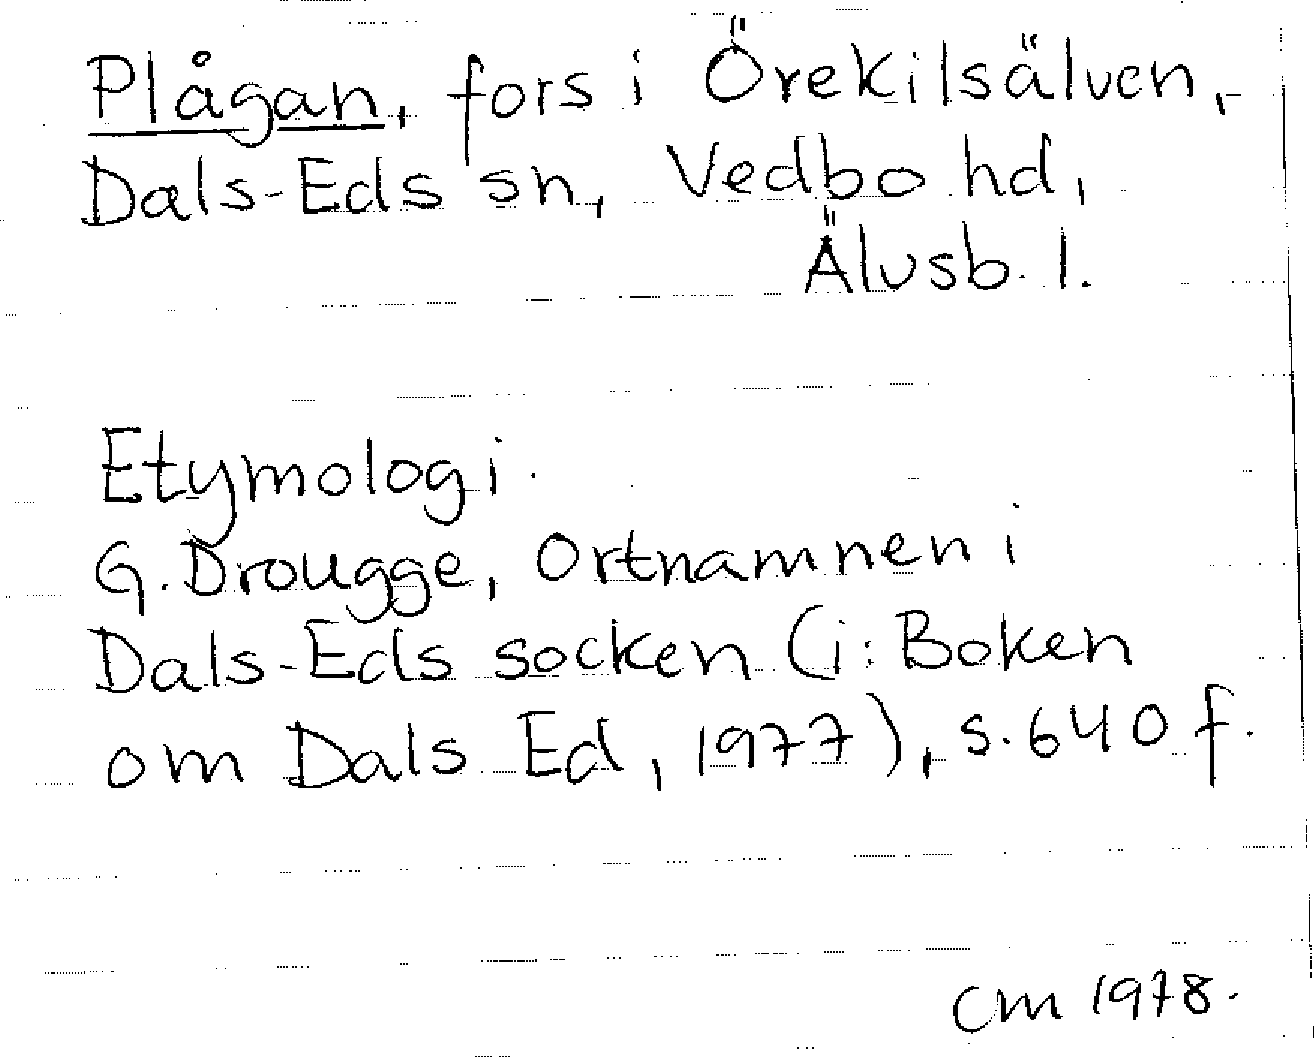 Plågan, fors i Örekilsälven,
Dals-Eds sn, Vedbo hd,
Älvsb. l.
Etymologi.
G. Drougge, Ortnamnen i
Dals-Eds socken (i: Boken
om Dals Ed, 1977), s. 640 f.
CM 1978.